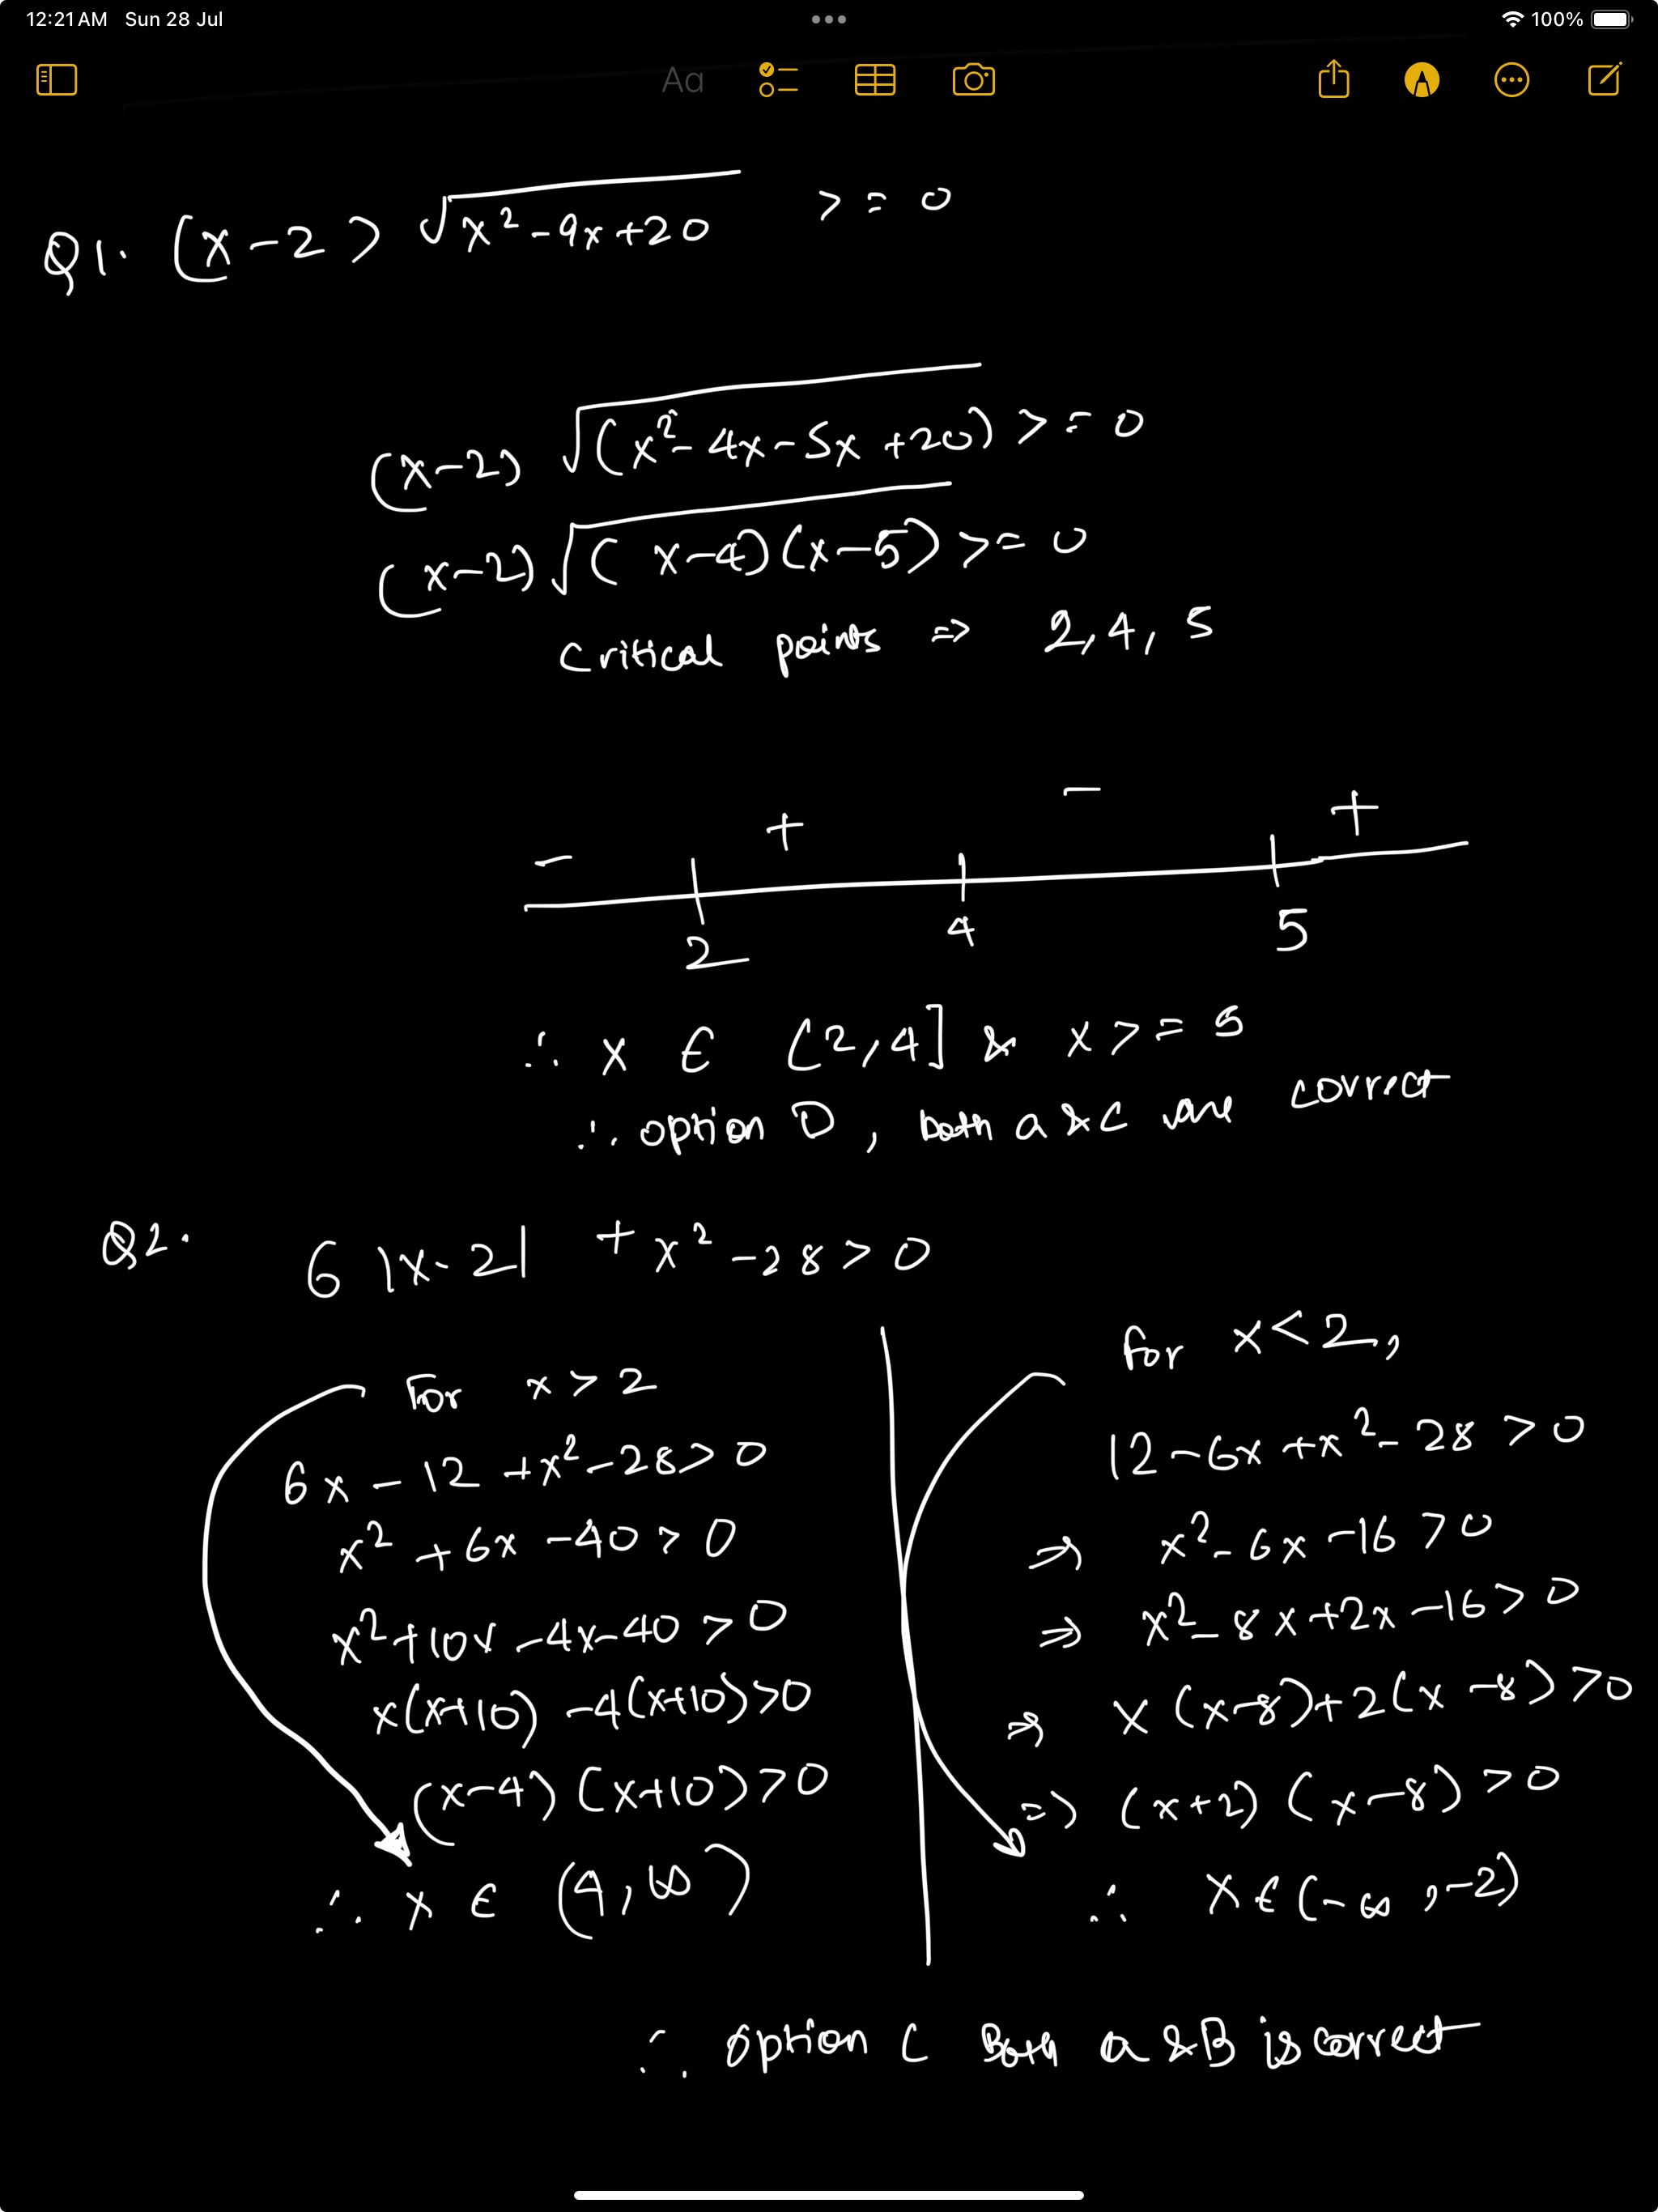 12:21 AM Sun 28 Jul
100%
Aa
Q1. (x-2) √(x²-9x+20) >= 0
(x-2) √(x²-4x-5x+20) >= 0
(x-2) √(x-4)(x-5) >= 0
Critical points => 2, 4, 5
- + - +
2 4 5
∴ x ∈ [2,4] & x >= 5
∴ option D, both a & C are correct
Q2. 6 |x-2| + x² -28 > 0
For x > 2
6x - 12 + x² - 28 > 0
x² + 6x - 40 > 0
x² + 10x - 4x - 40 > 0
x(x+10) - 4(x+10) > 0
(x-4) (x+10) > 0
∴ x ∈ (4, ∞)
for x < 2,
12 - 6x + x² - 28 > 0
=> x² - 6x - 16 > 0
=> x² - 8x + 2x - 16 > 0
=> x (x-8) + 2(x-8) > 0
=> (x+2) (x-8) > 0
∴ x ∈ (-∞, -2)
∴ option C Both a & B is correct